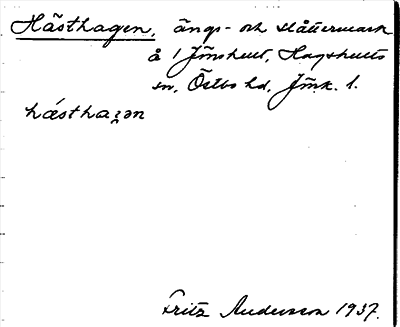 Hästhagen, ängs- och slåttermark
å 1 Jönshult, Hagshults
sn, Östbo hd, Jönk. l.
hǽsthagən
Fritz Andersson 1937.